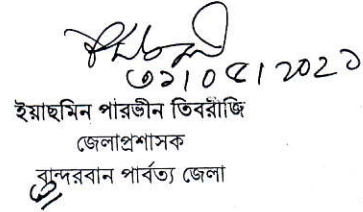 ইয়াছমিন পারভীন তিবরীজি
জেলাপ্রশাসক
বান্দরবান পার্বত্য জেলা